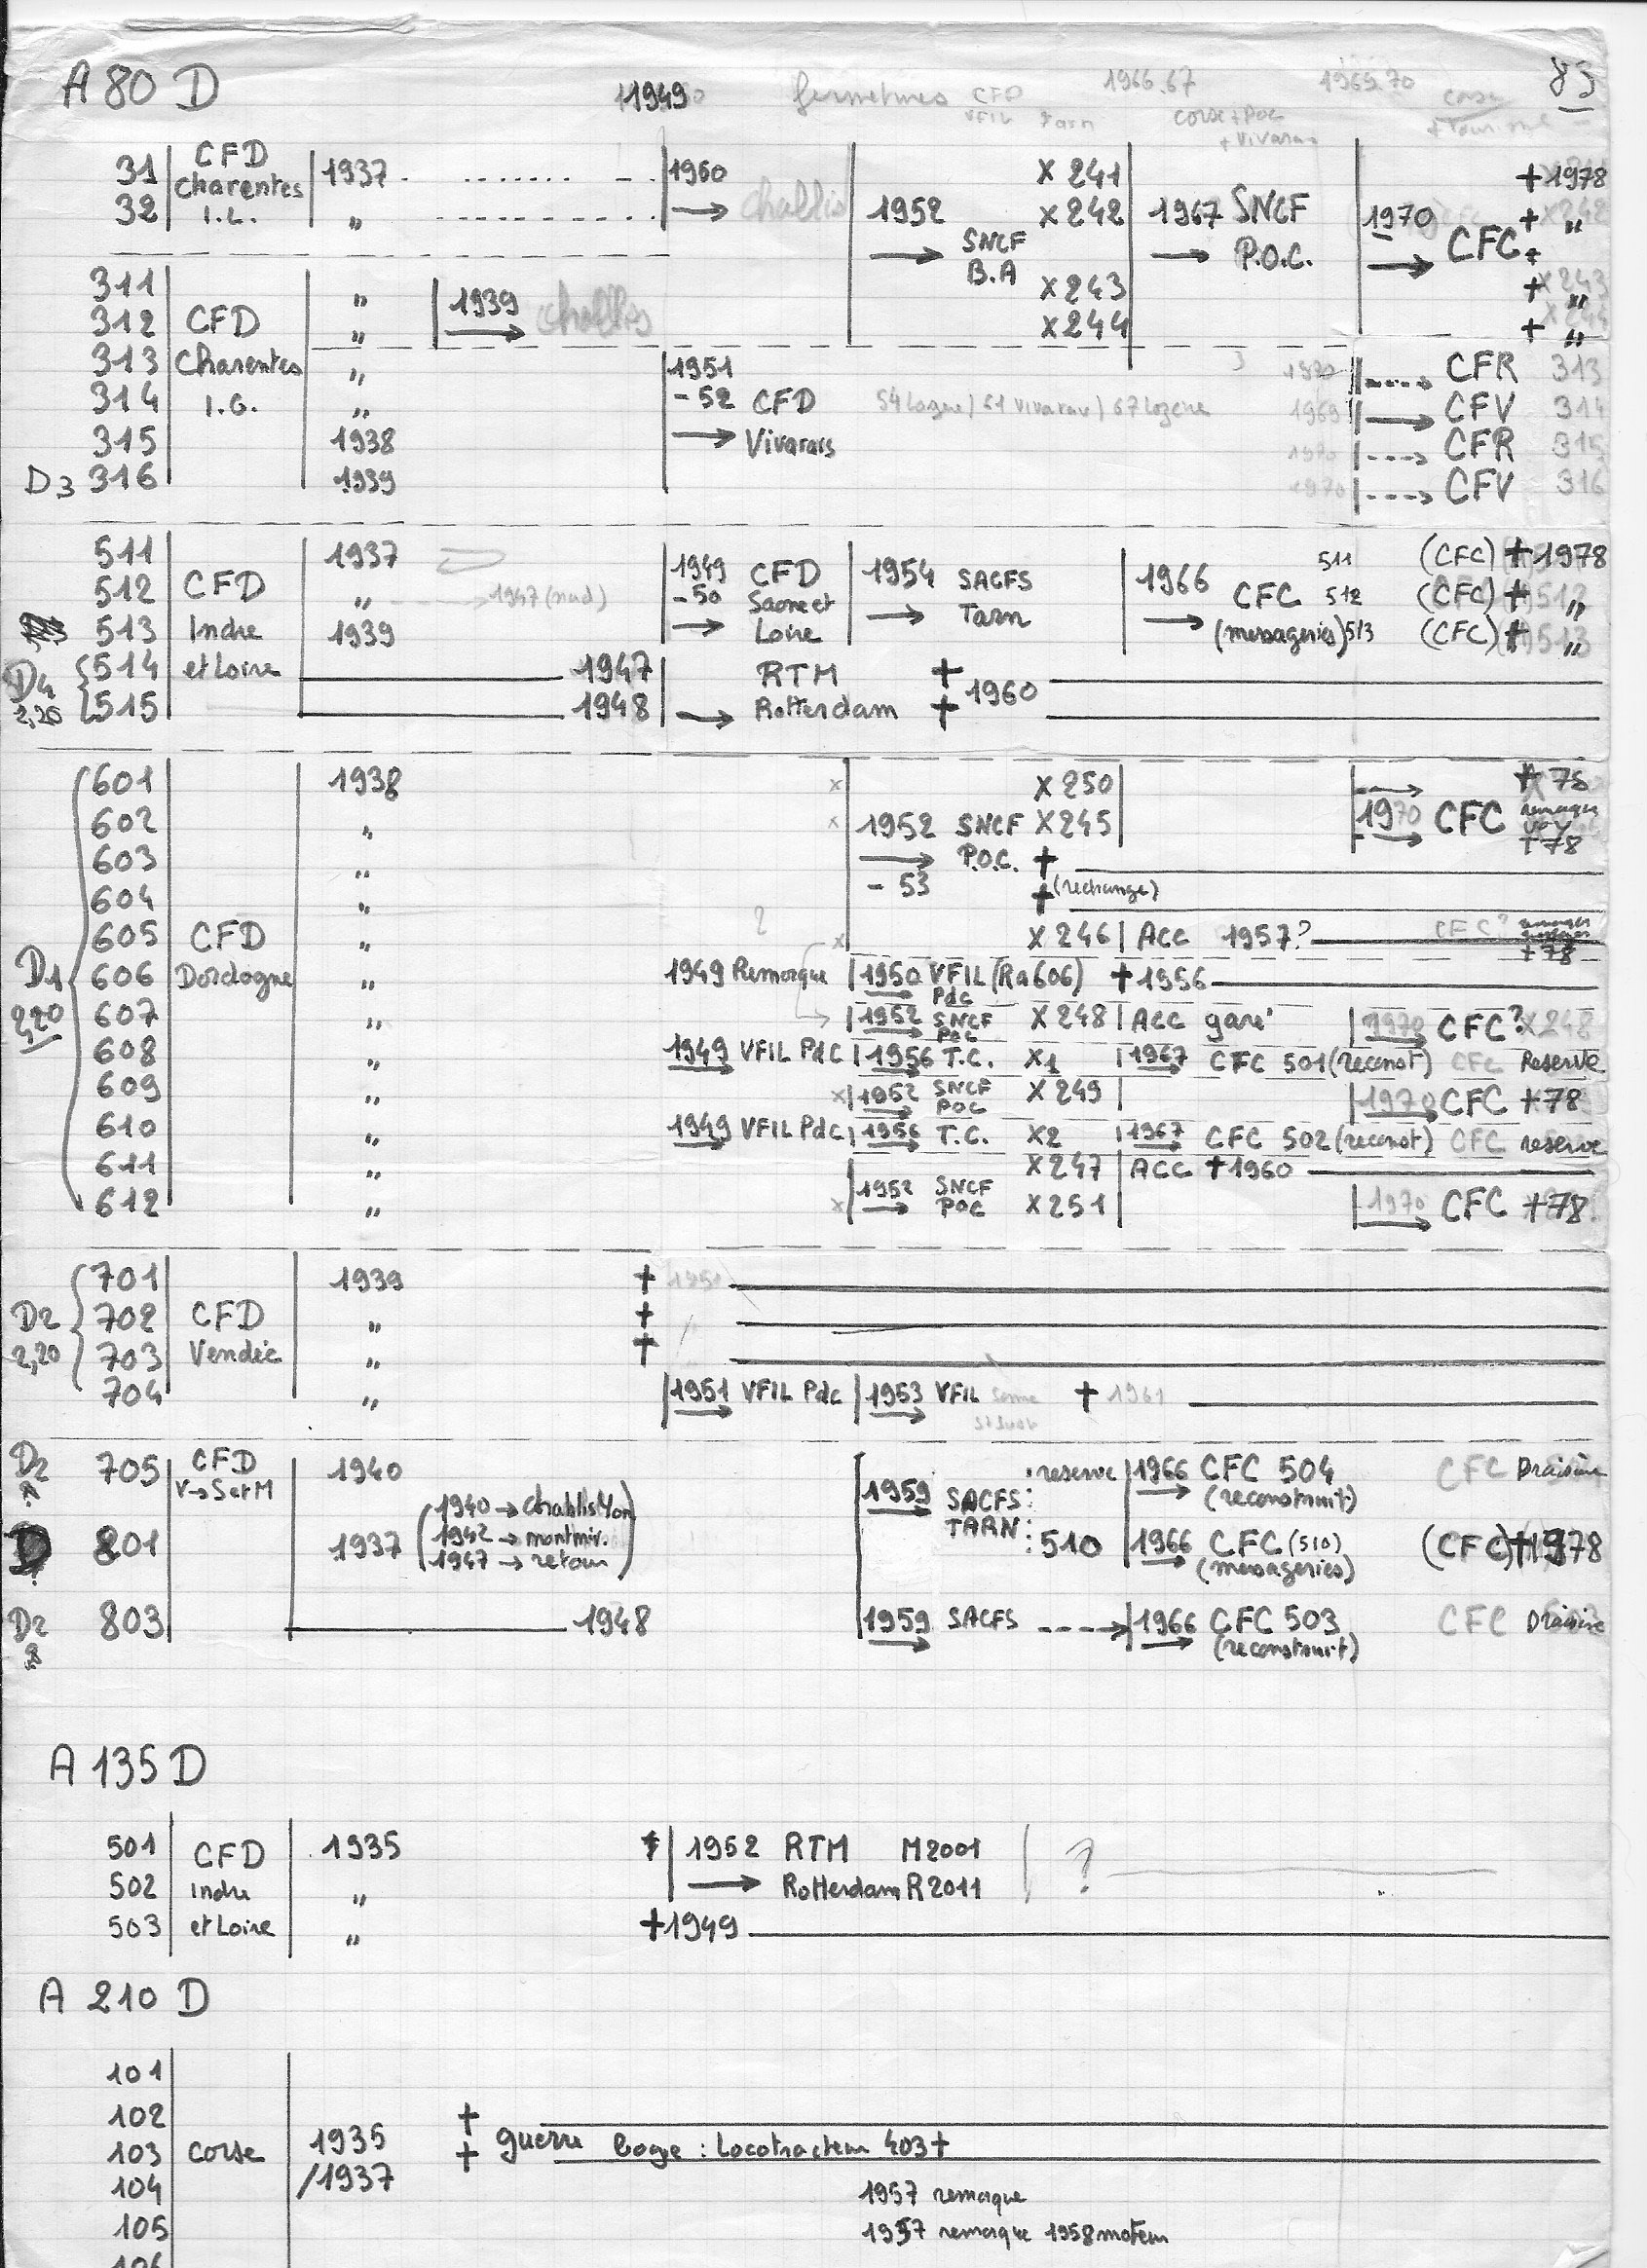 A 80 D 11949 fermetures CFD 1966.67 1969.70 Corse 83
VFIL Tarn Corse + POC + Tourisme
+ Vivarais
31 CFD 1937 1960 X 241 + 1978
32 Charentes „ → Chablis 1952 X 242 1967 SNCF 1970 + „
I.L. → SNCF → P.O.C. → CFC
B.A
311 „ 1939 X 243 + „
312 CFD „ → Chablis X 244 + „
313 Charentes „ 1951 1970 CFR 313
314 I.G. „ - 52 CFD 54 Lozère / 61 Vivarais / 67 Lozère 1969 → CFV 314
315 1938 → Vivarais 1970 CFR 315
D3 316 1939 1970 CFV 316
511 1937 1949 CFD 1954 SACFS 1966 511 (CFC) + 1978
512 CFD „ → 1947 (nord) - 50 Saone et → Tarn CFC 512 (CFC) + „
513 Indre 1939 → Loire → (messageries) 513 (CFC) + „
D4 514 et Loire 1947 RTM +
2,20 515 1948 → Rotterdam + 1960
601 1938 x X 250 → + 78
602 „ x 1952 SNCF X 245 1970 CFC
603 „ → P.O.C. + + 78
604 „ - 53 + (rechange)
605 CFD „ ? x X 246 ACC 1957? CFC? + 78
D1 606 Dordogne „ 1949 Remorque 1950 VFIL (Ra 606) + 1956
PdC
2,20 607 „ 1952 SNCF X 248 ACC garé 1970 CFC? X 248
POC
608 „ 1949 VFIL PdC 1956 T.C. X1 1967 CFC 501 (reconst) CFC Reserve
609 „ x 1952 SNCF X 249 1970 CFC + 78
POC
610 „ 1949 VFIL PdC 1956 T.C. X2 1967 CFC 502 (reconst) CFC reserve
611 „ X 247 ACC + 1960
612 „ x 1952 SNCF X 251 1970 CFC + 78
POC
701 1939 + 1950
D2 702 CFD „ +
2,20 703 Vendée „ +
704 „ 1951 VFIL PdC 1953 VFIL Somme + 1961
D2 705 CFD 1940 : reserve 1966 CFC 504 CFC Draisine
? V → S et M 1959 SACFS : → (reconstruit)
(1940 → Chablis Yon) TARN
D 801 1937 (1942 → montmir.) : 510 1966 CFC (510) (CFC) + 1978
? (1947 → retour) → (messageries)
D2 803 1948 1959 SACFS → 1966 CFC 503 CFC Draisine
? (reconstruit)
A 135 D
501 CFD 1935 1952 RTM M 2001 ?
502 Indre „ → Rotterdam R 2011
503 et Loire „ + 1949
A 210 D
101
102 +
103 Corse 1935 + guerre Boge : Locotracteur 403 +
104 /1937 1957 remorque
105 1957 remorque 1958 moteur
106